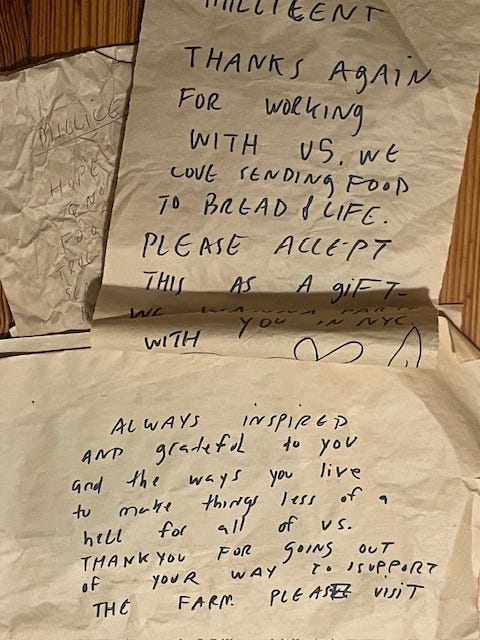 MILLICENT
THANKS AGAIN
FOR WORKING
WITH US. WE
LOVE SENDING FOOD
TO BREAD & LIFE.
PLEASE ACCEPT
THIS AS A gIFT-
WE WANNA PARTY
WITH YOU IN NYC
ALWAYS INSPIRED
AND grateful to you
and the ways you live
to make things less of a
hell for all of us.
THANK YOU FOR GOING OUT
OF YOUR WAY TO SUPPORT
THE FARM. PLEASE VISIT
MILLICE
HOPE
FOO